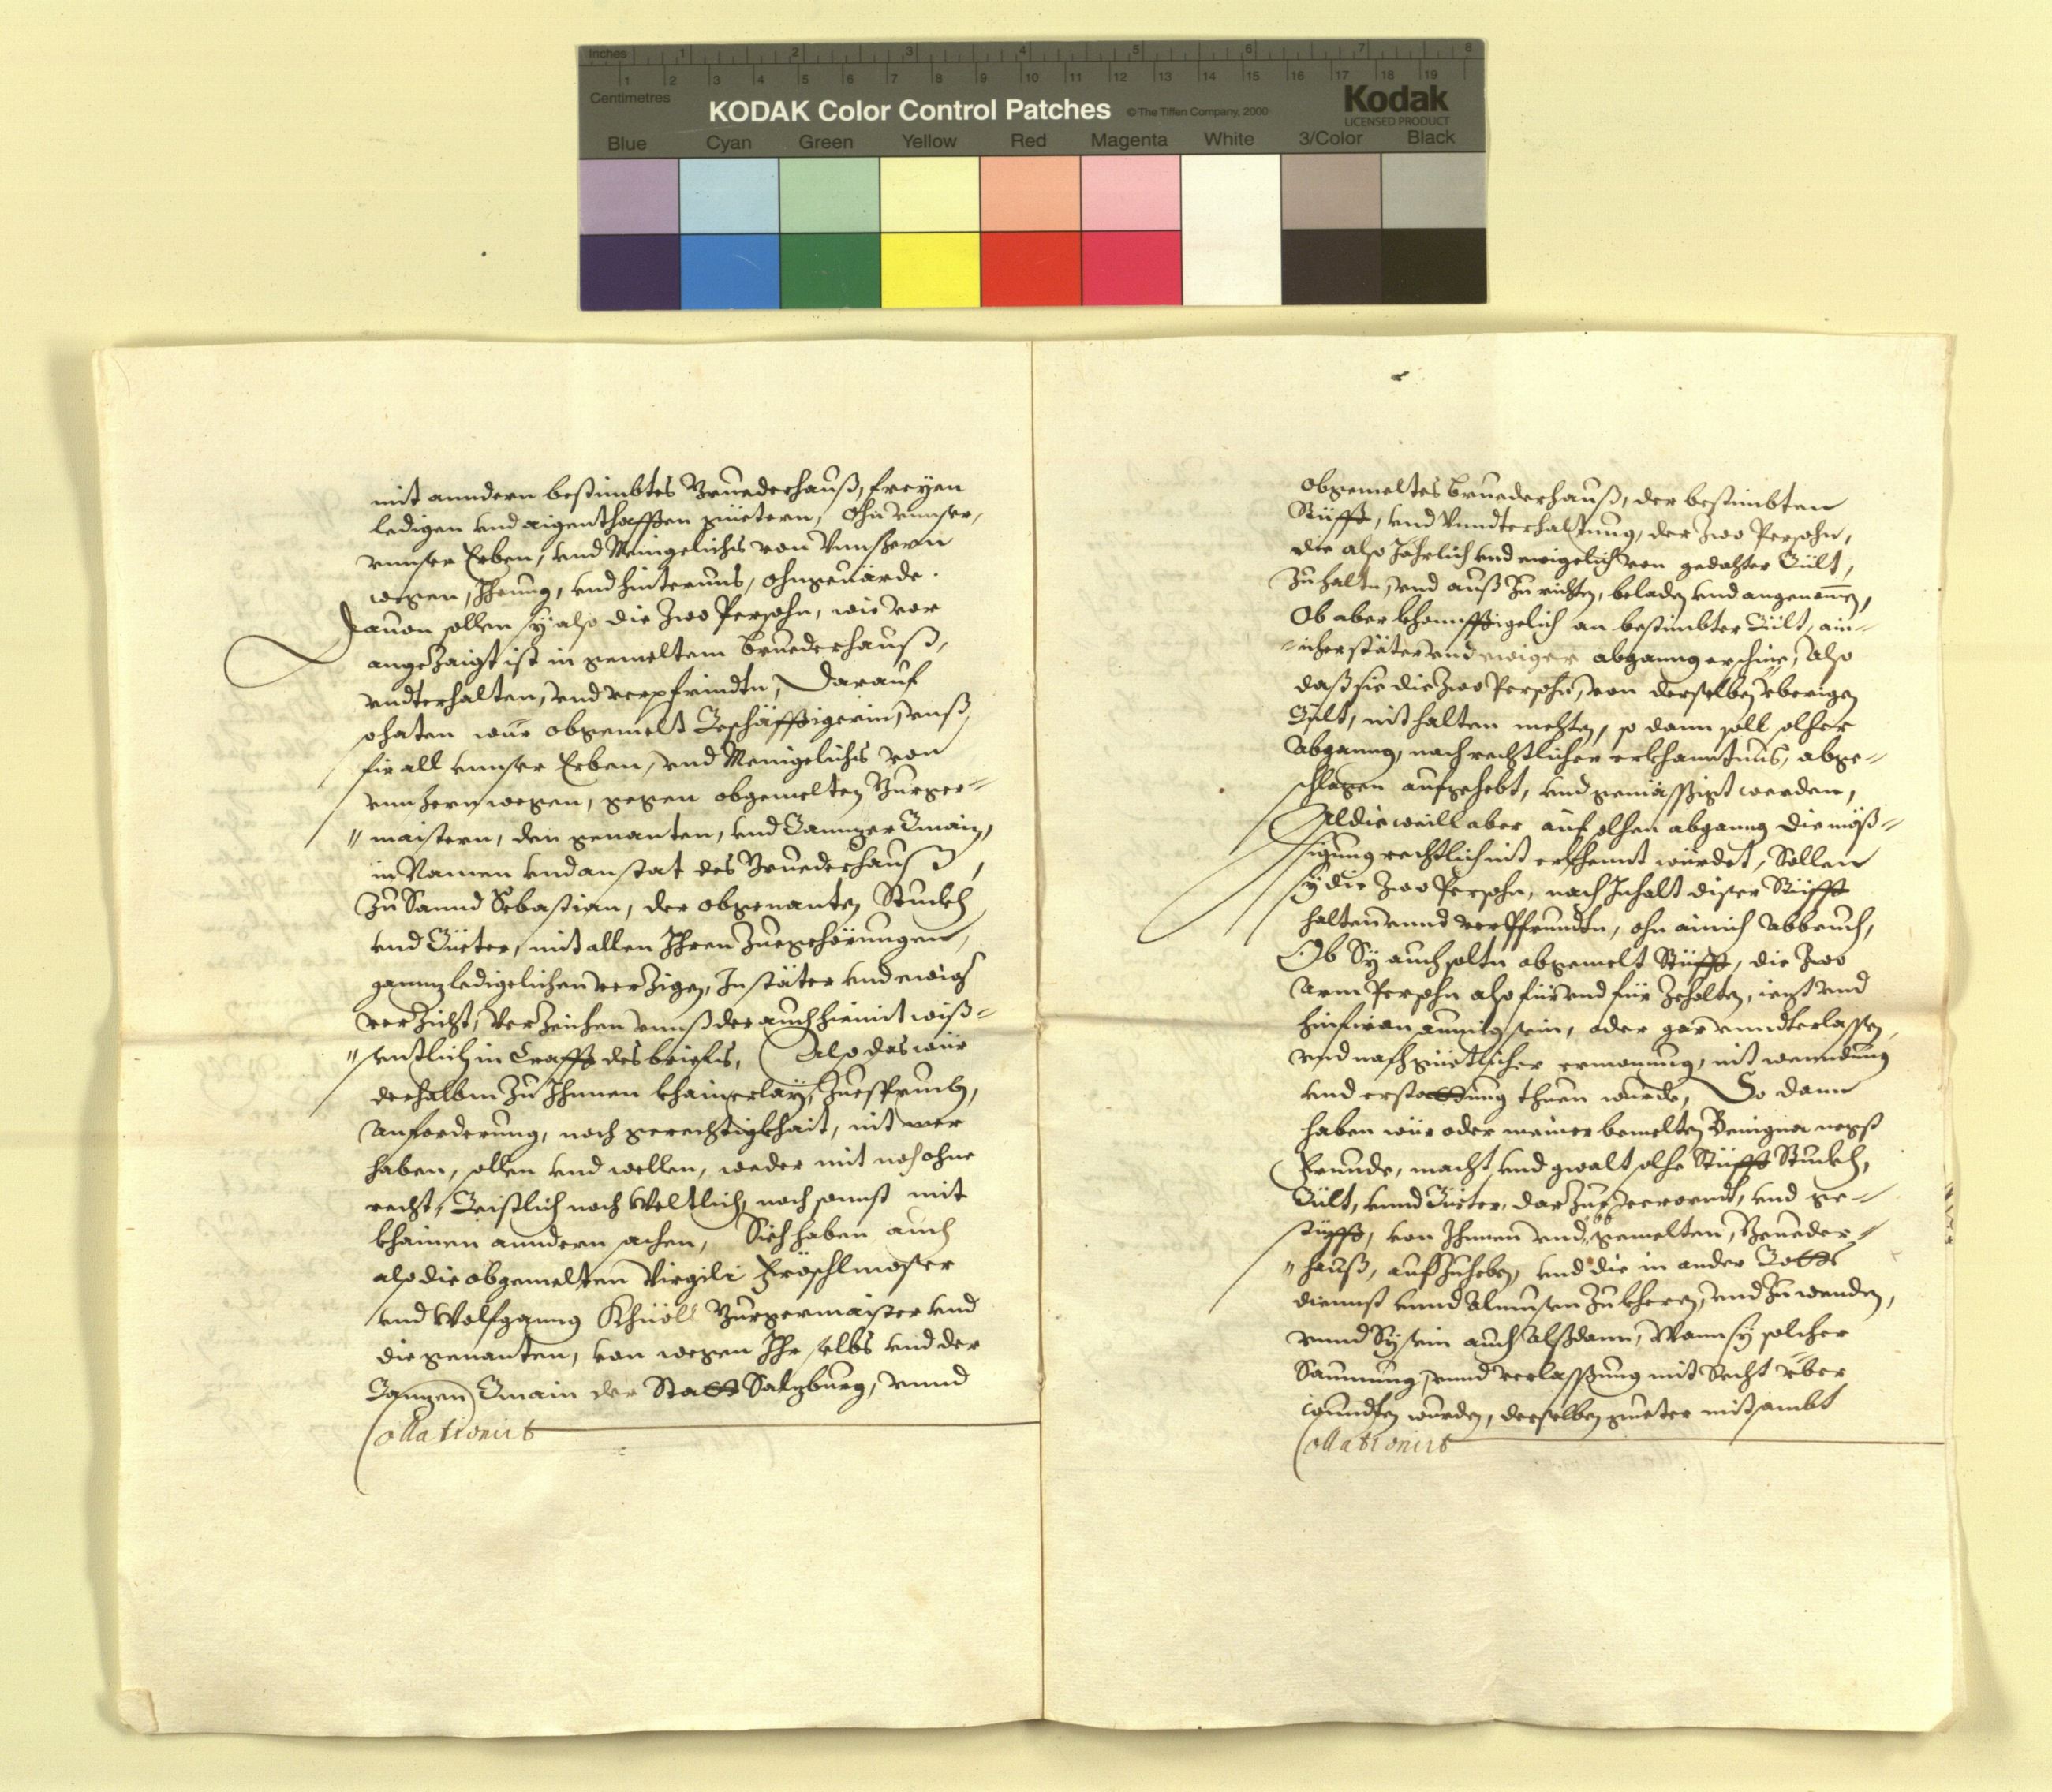 Inches 1 2 3 4 5 6 7 8
1 2 3 4 5 6 7 8 9 10 11 12 13 14 15 16 17 18 19
Centimetres
KODAK Color Control Patches © The Tiffen Company, 2000 Kodak
LICENSED PRODUCT
Blue Cyan Green Yellow Red Magenta White 3/Color Black
mit anndern bestimbtes Bruederhauß, freyen
ledigen vnd aigenthafften güetern, ohn vnnser,
vnnser Erben, vnd Menigelichs von Vnnsern
wegen, Ihrung, vnd hinternus, ohngeuärde.
Dauon sollen sÿ also die Zwo Persohn, wie vor
angeZaigt ist in gemeltem Bruederhauß,
vndterhalten, vnd verpfrindtn, Darauf
so haten wür obgemelt Geschäfftigerin, vnß
fir all vnnser Erben, vnd Menigelichs von
vnnsern wegen, gegen obgemelten Burger-
maistern, den genanten, vnd Ganntzer Gmain,
in Namen vnd anstat des Bruederhauß,
Zu Sannd Sebastian, der obgenanten Stuckh
vnd Güeter, mit allen Ihren Zuegehörungen,
ganntz ledigelichen verZigen, In stäter vnd ewigs
verZicht, VerZeichen vnnß der auch hiemit wiß-
sentlich in Crafft des briefis, Also das wür
derhalben Zu Ihnnen khainerlaÿ, Zuespruch,
Anforderung, noch gerechtigkhait, nit mer
haben, sollen vnd wellen, weder mit noch ohne
recht, Geistlich noch Weltlich, noch sonnst mit
khainen anndern sachen, Sich haben auch
also die obgemelten Virgili Fröschlmoser
vnd Wolfganng Khnöll Burgermaister vnd
die genanten, von wegen Ihr selbs vnd der
Gantzen Gmain der Statt Saltzburg, vnnd
Collationirt
obgemeltes Bruederhauß, der bestimbten
Stüfft, vnd Vnndterhaltung, der Zwo Persohn,
die also Jahrlich vnd ewigelich von gedachter Gült,
Zu haltn, vnd auß Zu richten, beladen vnd angenomen,
Ob aber khonnfftigelich an bestimbter Gült, ain-
icher stäter vnd ewiger abganng erschine, Also
daß sie die Zwo Persohn, von derselben yberigen
Gült, nit halten mechten, so dann soll solcher
Abganng, nach rechtlicher erkhanntnus, abge-
schlagen aufgehebt, vnd gemässigt werden,
Aldieweill aber auf solhen abganng die mäs-
sigung rechtlich nit erkhennt würdet, Sollen
sÿ die Zwo Persohn, nach Inhalt diser Stüfft
halten vnnd verPfrundtn, ohn ainich Abbruch,
Ob Sÿ auch soltn obgemelt Stüfft, die Zwo
Arm Persohn also für vnd für Zehalten, ietzt vnd
hinfiran sein, oder gar vnndterlassen,
vnd nach güetlicher ermonung, nit wenndung
vnd erstattung thuen wurde, So dann
haben wür oder meiner bemelten Benigna negst
Freunde, macht vnd gwalt solhe Stüfft Stuckh,
Gült, vnnd Güeter, darZue verordt, vnd ge-
stüfft, von Ihnnen vnd obgemelten, Brueder-
hauß, aufZuheben, vnd die in ander Gotts
diennst vnnd Almusen Zu kheren, vnd Zu wenden,
vnnd Sÿ sein auch alßdann, Wann sÿ solcher
Saumung, vnnd verlassung mit Recht yber
wunden wurden, derselben gueter mit sambt
Collationirt